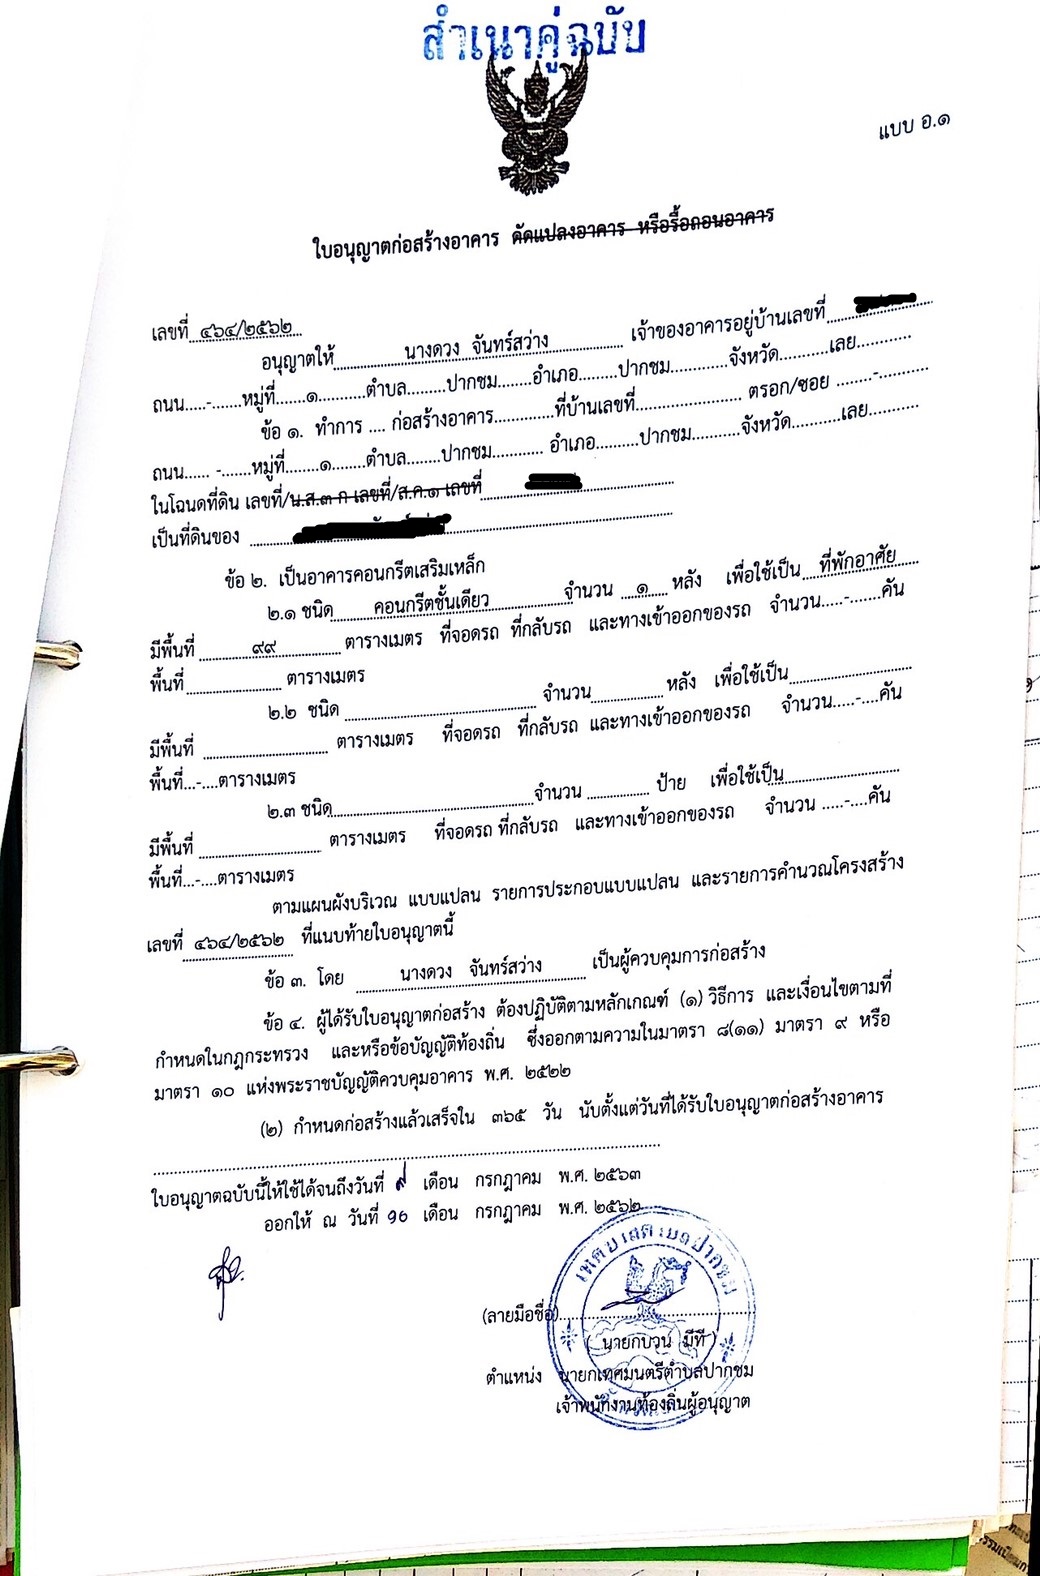 สำเนาคู่ฉบับ
แบบ อ.๑
ใบอนุญาตก่อสร้างอาคาร ดัดแปลงอาคาร หรือรื้อถอนอาคาร
เลขที่ ๔๖๔/๒๕๖๒
อนุญาตให้ นางดวง จันทร์สว่าง เจ้าของอาคารอยู่บ้านเลขที่
ถนน.....-.......หมู่ที่.......๑...........ตำบล........ปากชม.......อำเภอ.........ปากชม.............จังหวัด...........เลย...........
ข้อ ๑. ทำการ .... ก่อสร้างอาคาร............ที่บ้านเลขที่...................... ตรอก/ซอย ........-..........
ถนน...... -.......หมู่ที่.......๑........ตำบล........ปากชม........... อำเภอ..........ปากชม...........จังหวัด...........เลย...........
ในโฉนดที่ดิน เลขที่/น.ส.๓ ก เลขที่/ส.ค.๑ เลขที่
เป็นที่ดินของ
ข้อ ๒. เป็นอาคารคอนกรีตเสริมเหล็ก
๒.๑ ชนิด คอนกรีตชั้นเดียว จำนวน ๑ หลัง เพื่อใช้เป็น ที่พักอาศัย
มีพื้นที่ ๙๙ ตารางเมตร ที่จอดรถ ที่กลับรถ และทางเข้าออกของรถ จำนวน.....-.......คัน
พื้นที่ ตารางเมตร
๒.๒ ชนิด จำนวน หลัง เพื่อใช้เป็น
มีพื้นที่ ตารางเมตร ที่จอดรถ ที่กลับรถ และทางเข้าออกของรถ จำนวน.....-....คัน
พื้นที่...-....ตารางเมตร
๒.๓ ชนิด จำนวน ป้าย เพื่อใช้เป็น
มีพื้นที่ ตารางเมตร ที่จอดรถ ที่กลับรถ และทางเข้าออกของรถ จำนวน .....-....คัน
พื้นที่...-....ตารางเมตร
ตามแผนผังบริเวณ แบบแปลน รายการประกอบแบบแปลน และรายการคำนวณโครงสร้าง
เลขที่ ๔๖๔/๒๕๖๒ ที่แนบท้ายใบอนุญาตนี้
ข้อ ๓. โดย นางดวง จันทร์สว่าง เป็นผู้ควบคุมการก่อสร้าง
ข้อ ๔. ผู้ได้รับใบอนุญาตก่อสร้าง ต้องปฏิบัติตามหลักเกณฑ์ (๑) วิธีการ และเงื่อนไขตามที่
กำหนดในกฎกระทรวง และหรือข้อบัญญัติท้องถิ่น ซึ่งออกตามความในมาตรา ๘(๑๑) มาตรา ๙ หรือ
มาตรา ๑๐ แห่งพระราชบัญญัติควบคุมอาคาร พ.ศ. ๒๕๒๒
(๒) กำหนดก่อสร้างแล้วเสร็จใน ๓๖๕ วัน นับตั้งแต่วันที่ได้รับใบอนุญาตก่อสร้างอาคาร
ใบอนุญาตฉบับนี้ให้ใช้ได้จนถึงวันที่ ๙ เดือน กรกฎาคม พ.ศ. ๒๕๖๓
ออกให้ ณ วันที่ ๑๐ เดือน กรกฎาคม พ.ศ. ๒๕๖๒
เทศบาลตำบลปากชม
(ลายมือชื่อ)
( นายกบวน มีที )
ตำแหน่ง นายกเทศมนตรีตำบลปากชม
เจ้าพนักงานท้องถิ่นผู้อนุญาต